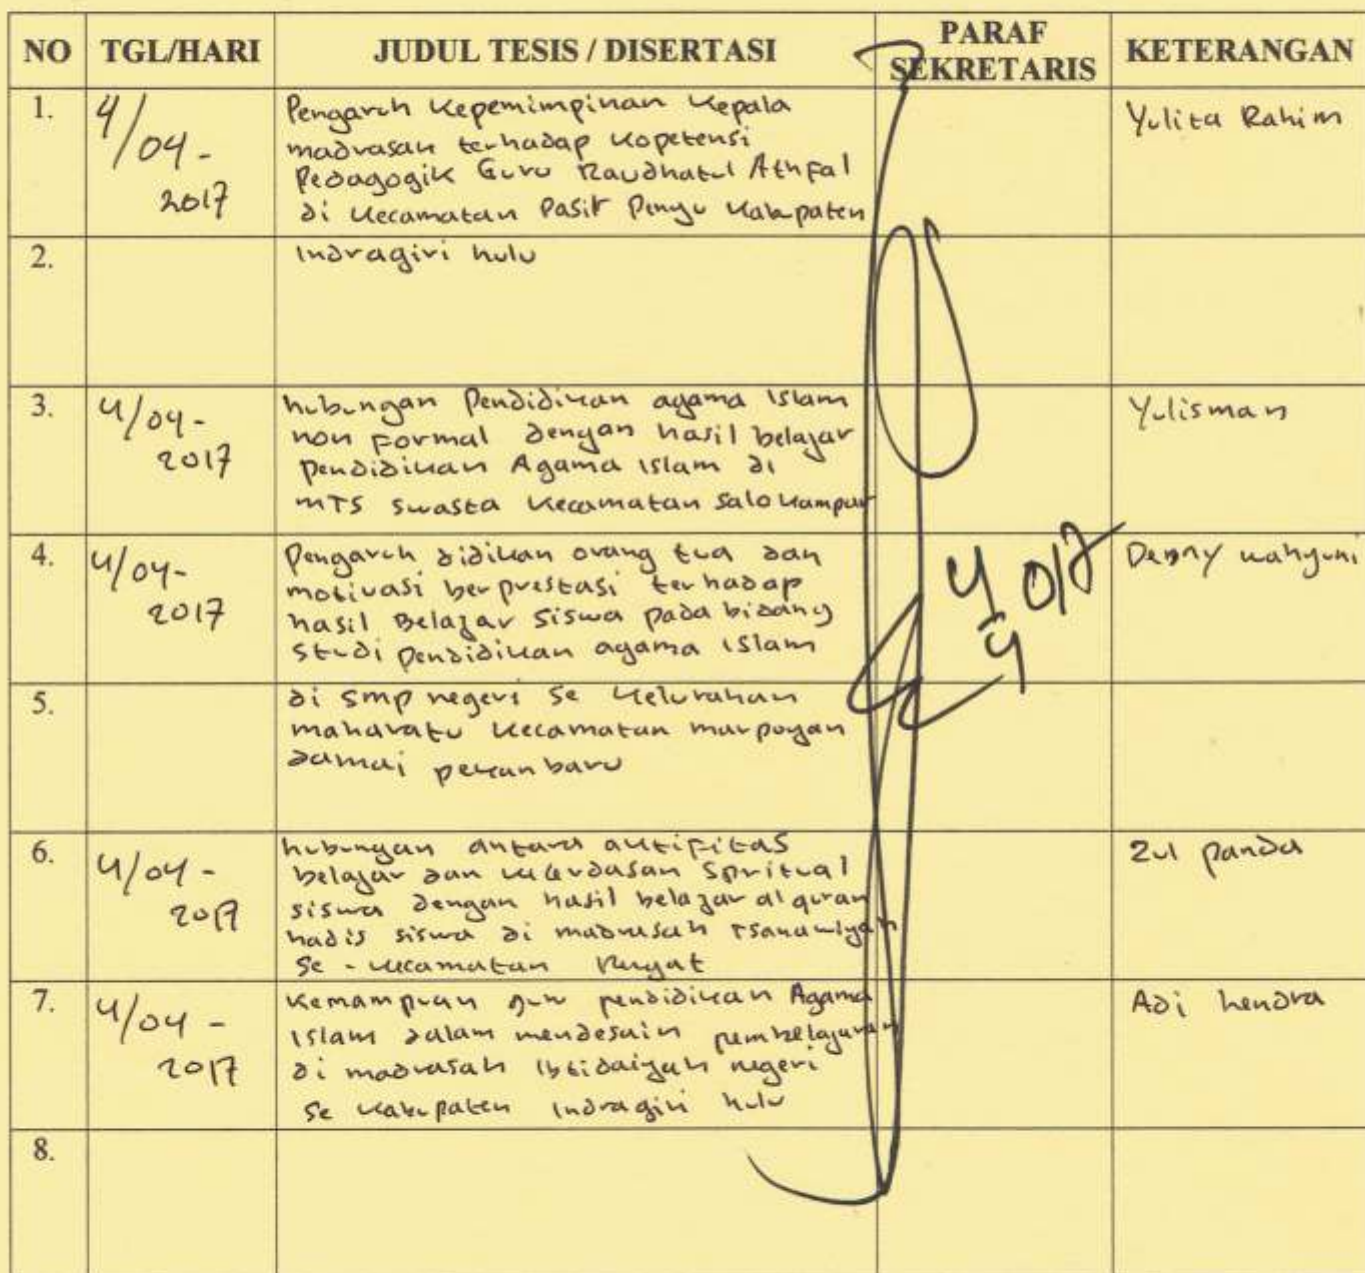 NO TGL/HARI JUDUL TESIS / DISERTASI PARAF SEKRETARIS KETERANGAN
1. 4/04-2017 Pengaruh Kepemimpinan Kepala Yulita Rahim
madrasah terhadap Kopetensi
Pedagogik Guru Raudhatul Athfal
di Kecamatan Pasir Penyu Kabupaten
2. Indragiri hulu
3. 4/04-2017 hubungan Pendidikan agama Islam Yulisman
non Formal dengan hasil belajar
pendidikan Agama Islam di
MTS swasta Kecamatan Salo Kampar
4. 4/04-2017 Pengaruh didikan orang tua dan Denny wahyuni
motivasi berprestasi terhadap
hasil Belajar Siswa pada bidang
Studi pendidikan agama Islam
5. di smp negeri se Kelurahan
maharatu Kecamatan marpoyan
damai pekanbaru
6. 4/04-2017 hubungan antara aktifitas Zul panda
belajar dan kecerdasan Spritual
siswa dengan hasil belajar al quran
hadis siswa di madrasah Tsanawiyah
Se-Kecamatan Rengat
7. 4/04-2017 Kemampuan guru pendidikan Agama Adi hendra
Islam dalam mendesain pembelajaran
di madrasah Ibtidaiyah negeri
Se Kabupaten Indragiri hulu
8.